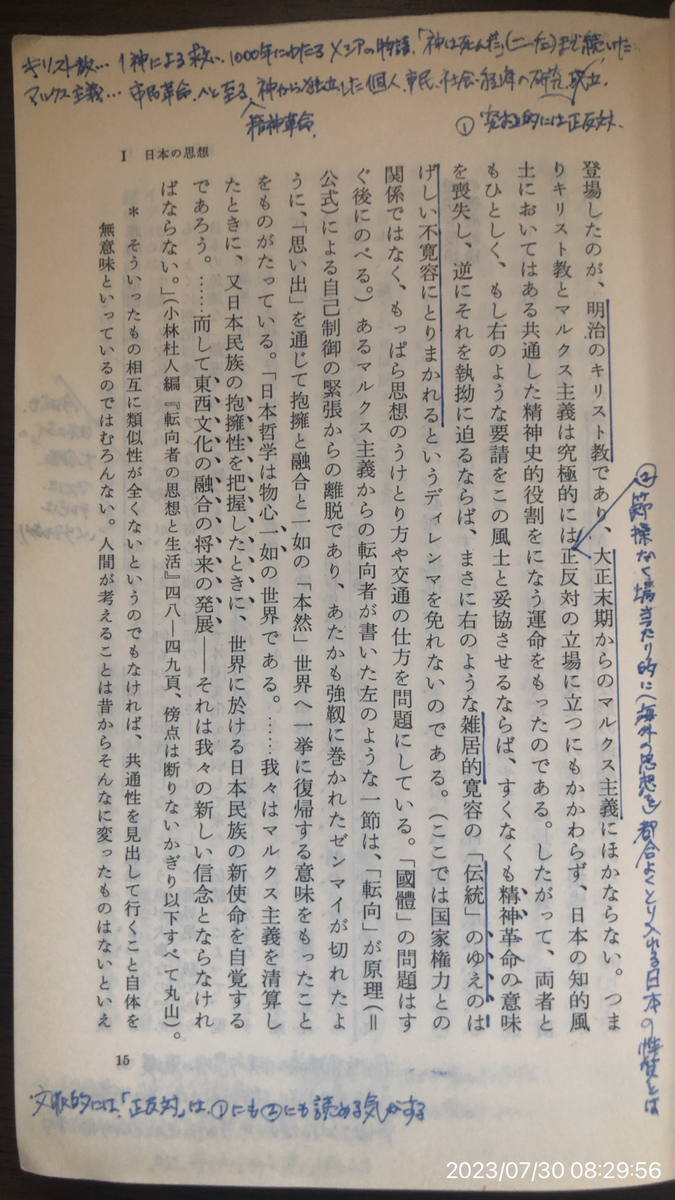 キリスト教… 1神による救い、1000年にわたるメシアの物語、「神は死んだ」(ニーチェ)まで続いた
マルクス主義… 市民革命へと至る、神から独立した個人、市民、社会
精神革命
① 究極的には正反対、
I　日本の思想
登場したのが、明治のキリスト教であり、大正末期からのマルクス主義にほかならない。つま
りキリスト教とマルクス主義は究極的には正反対の立場に立つにもかかわらず、日本の知的風
土においてはある共通した精神史的役割をになう運命をもったのである。したがって、両者と
もひとしく、もし右のような要請をこの風土と妥協させるならば、すくなくも精神革命の意味
を喪失し、逆にそれを執拗に迫るならば、まさに右のような雑居的寛容の「伝統」のゆえのは
げしい不寛容にとりまかれるというディレンマを免れないのである。(ここでは国家権力との
関係ではなく、もっぱら思想のうけとり方や交通の仕方を問題にしている。「國體」の問題はす
ぐ後にのべる。)あるマルクス主義からの転向者が書いた左のような一節は、「転向」が原理(=
公式)による自己制御の緊張からの離脱であり、あたかも強靱に巻かれたゼンマイが切れたよ
うに、「思い出」を通じて抱擁と融合と一如の「本然」世界へ一挙に復帰する意味をもったこと
をものがたっている。「日本哲学は物心一如の世界である。……我々はマルクス主義を清算し
たときに、又日本民族の抱擁性を把握したときに、世界に於ける日本民族の新使命を自覚する
であろう。……而して東西文化の融合の将来の発展――それは我々の新しい信念とならなけれ
ばならない。」(小林杜人編『転向者の思想と生活』四八―四九頁、傍点は断りないかぎり以下すべて丸山)。
＊ そういったもの相互に類似性が全くないというのでもなければ、共通性を見出して行くこと自体を
無意味といっているのではむろんない。人間が考えることは昔からそんなに変ったものはないといえ
15
② 節操なく場当たり的に(海外の思想を)都合よくとり入れる日本の性質とは
文脈的には、「正反対」は、①にも②にも読める気がする
2023/07/30 08:29:56